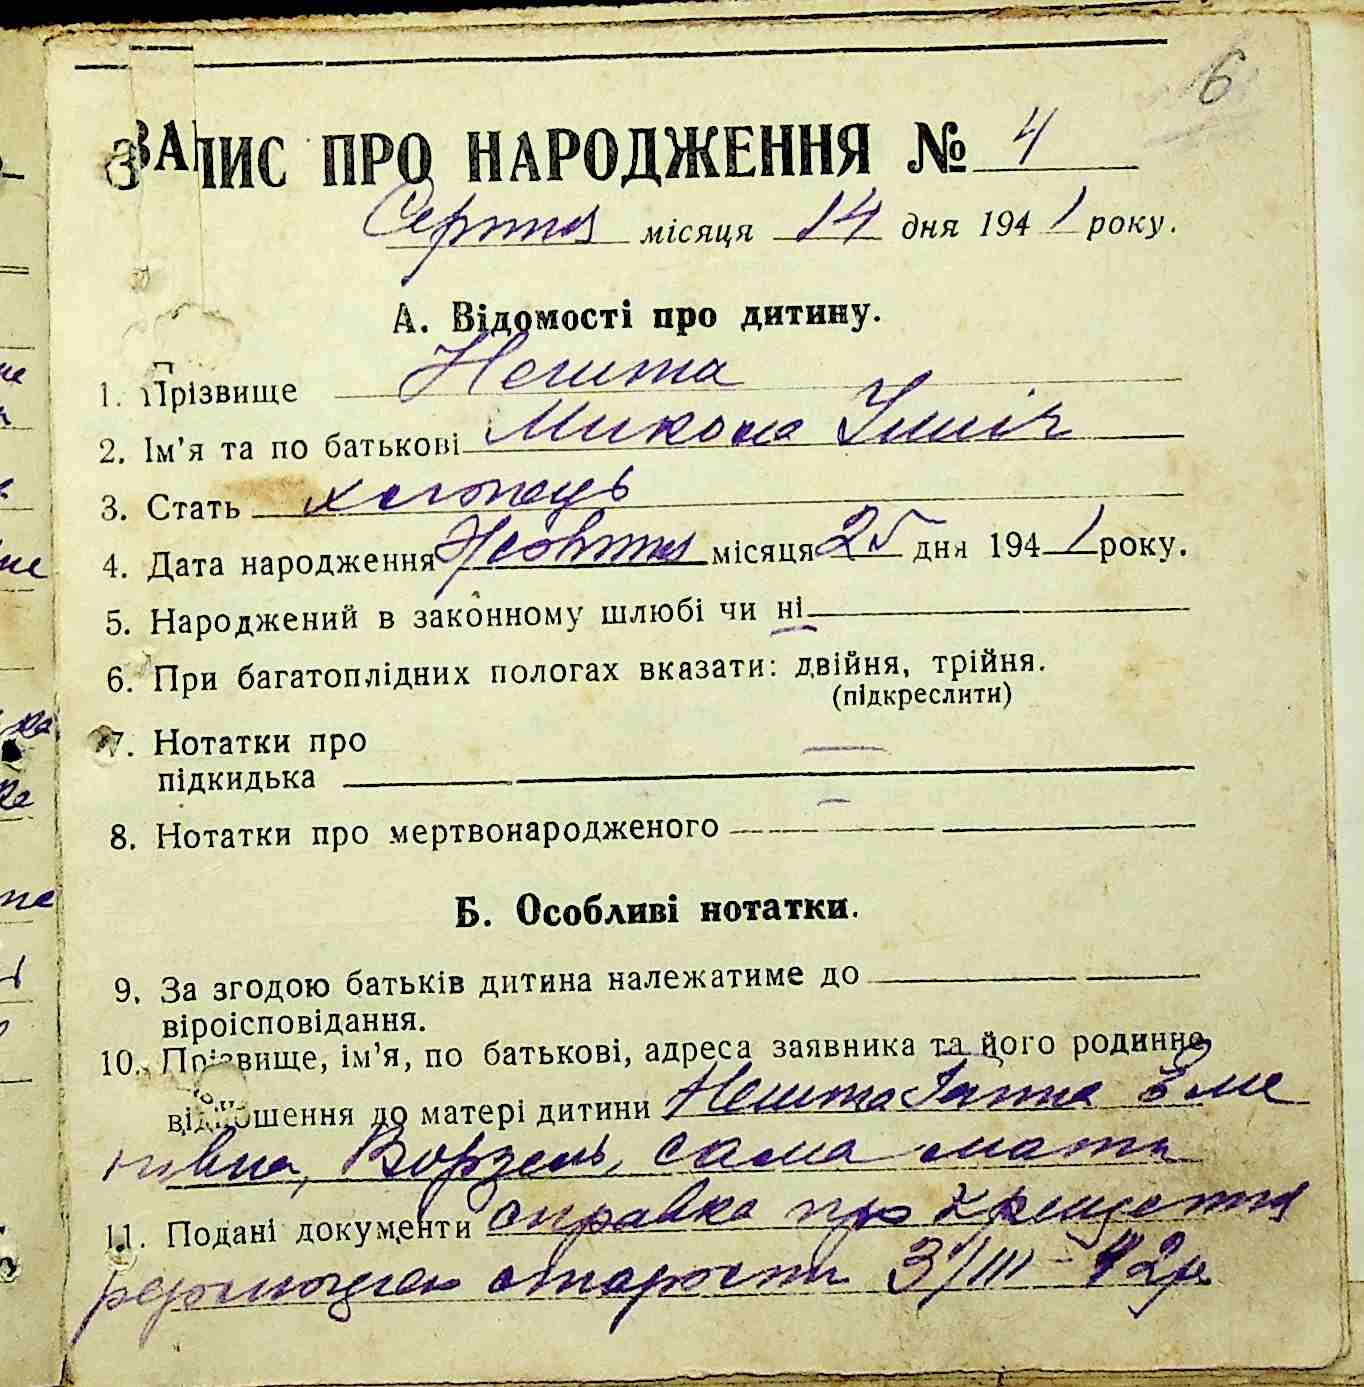 6
ЗАПИС ПРО НАРОДЖЕННЯ № 4
Серпня місяця 14 дня 1941 року.
А. Відомості про дитину.
1. Прізвище Нешта
2. Ім'я та по батькові Микола Ілліч
3. Стать хлопець
4. Дата народження Жовтня місяця 25 дня 1941 року.
5. Народжений в законному шлюбі чи ні
6. При багатоплідних пологах вказати: двійня, трійня.
(підкреслити)
7. Нотатки про —
підкидька
8. Нотатки про мертвонародженого —
Б. Особливі нотатки.
9. За згодою батьків дитина належатиме до
віроісповідання.
10. Прізвище, ім'я, по батькові, адреса заявника та його родинне
відношення до матері дитини Нешта Ганна
Ворзель, сама мати
11. Подані документи справка про хрещення
старости 31/III-42р